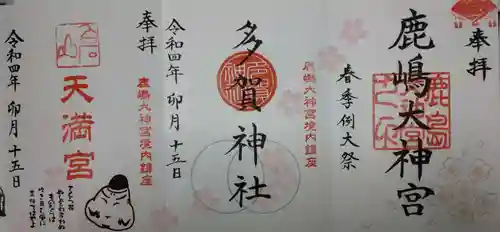 奉拝
鹿嶋大神宮
春季例大祭
鹿嶋大神宮境内鎮座
多賀神社
令和四年 卯月 十五日
奉拝
鹿嶋大神宮境内鎮座
天満宮
令和四年 卯月 十五日